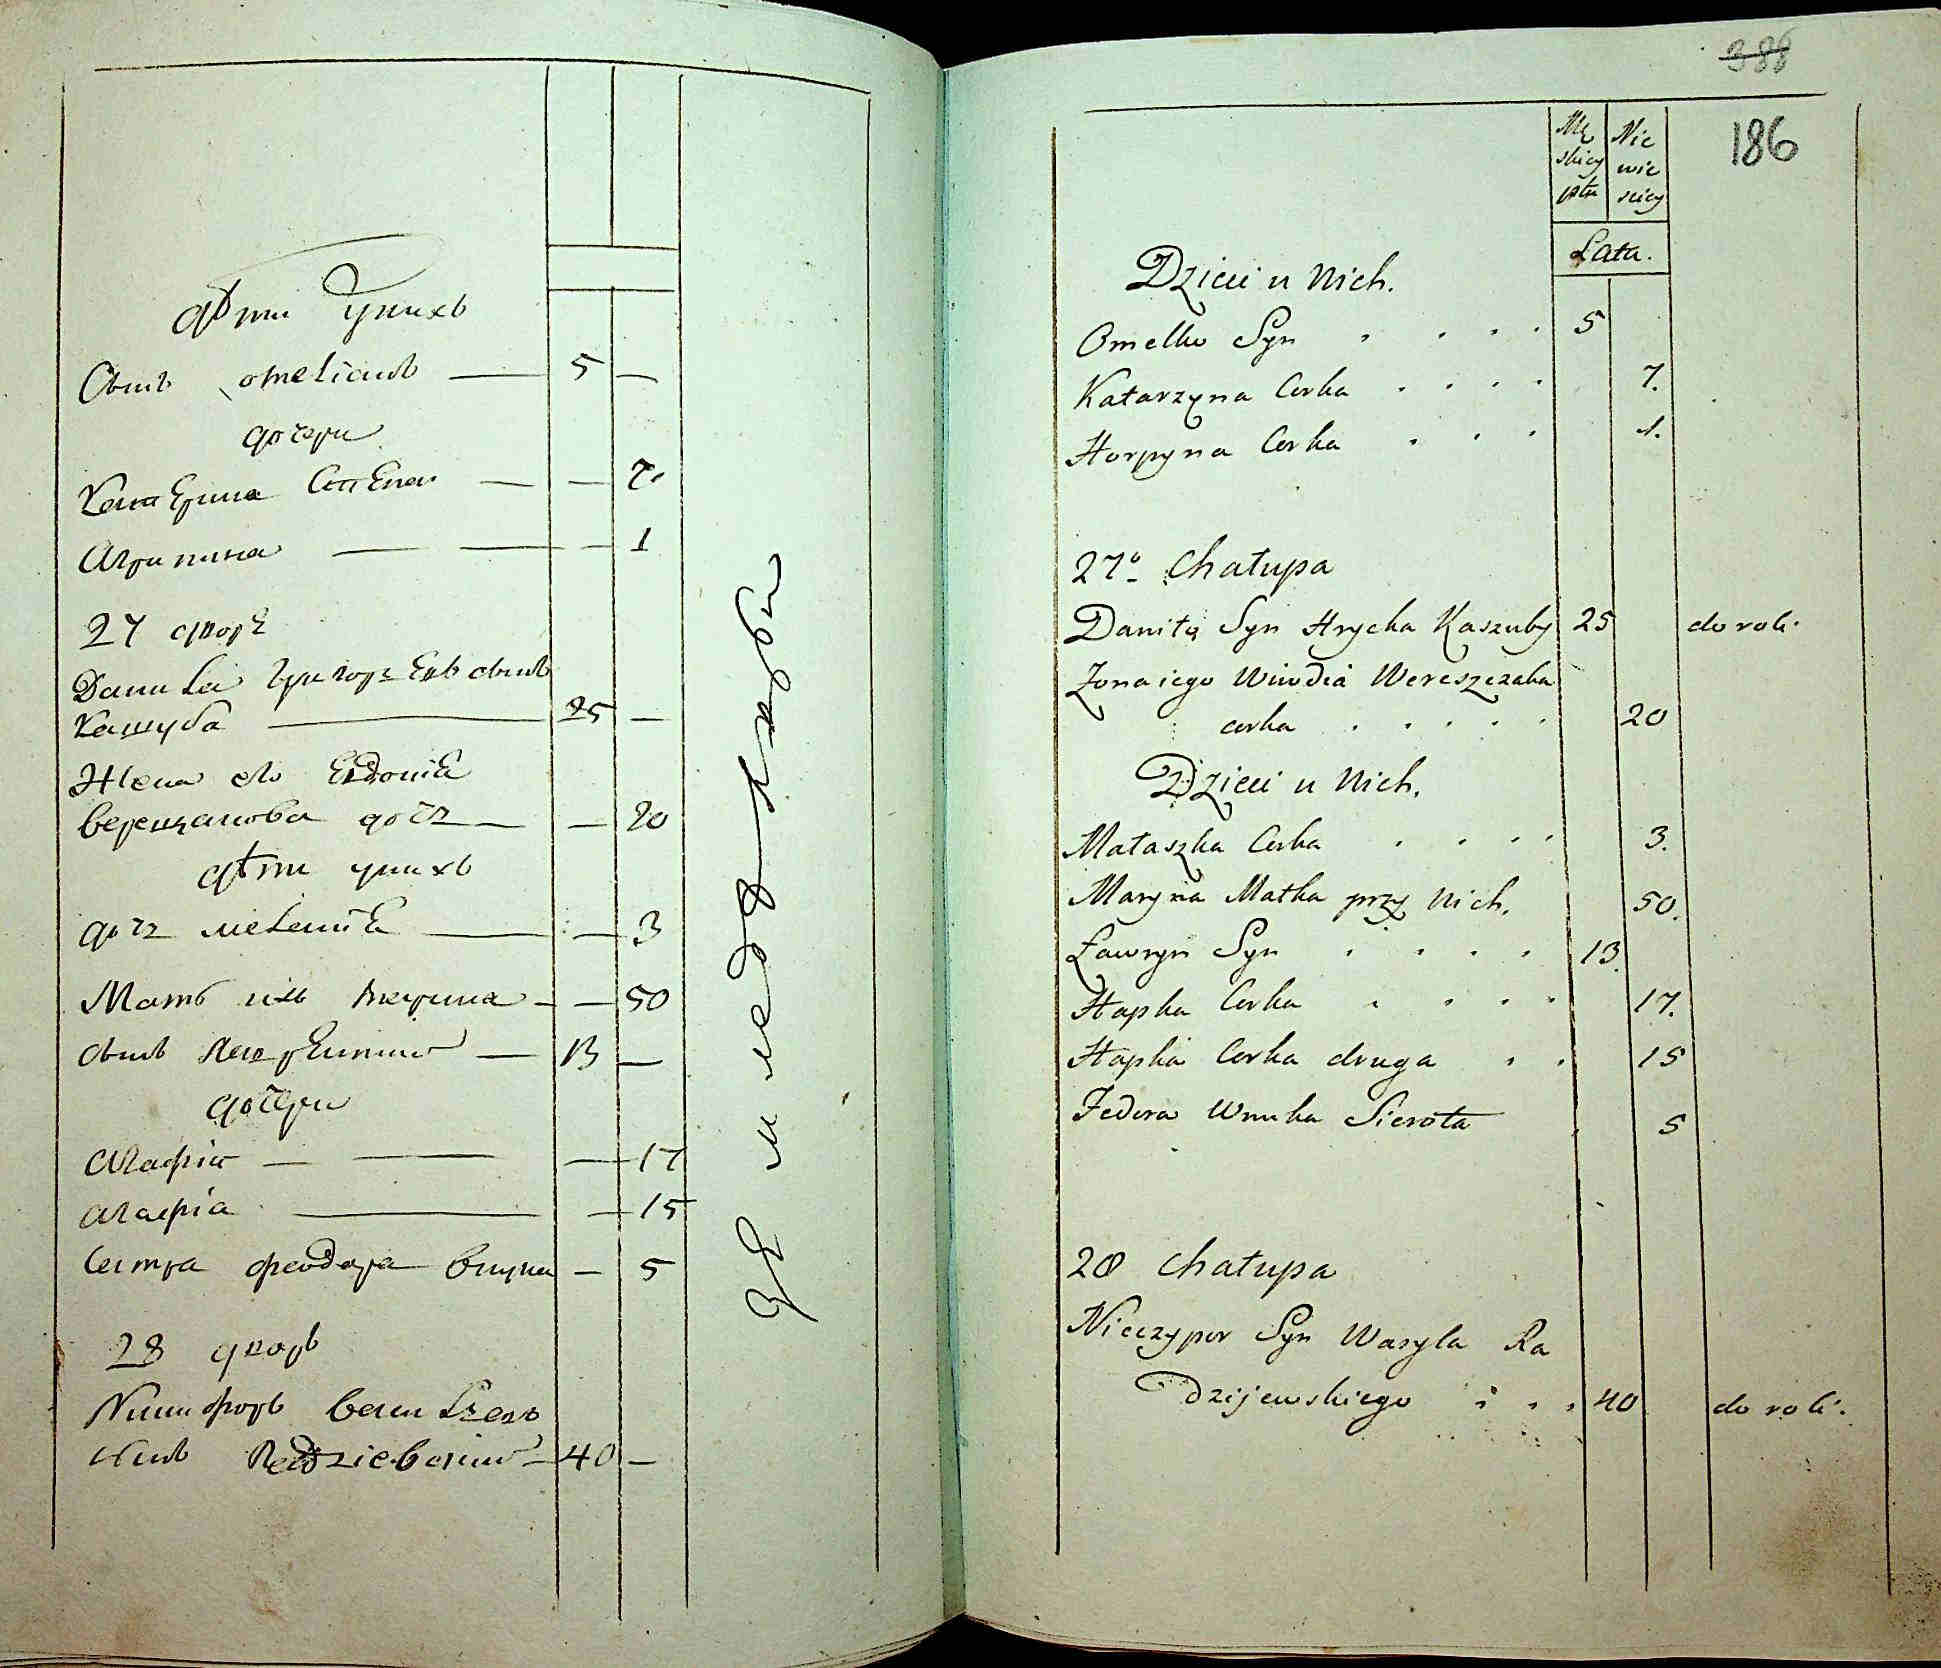 дѣти у нихъ
Сынъ омелианъ — 5 —
дочери
Катерина Степана — — 7.
Агрипина — — — 1
27 дворъ
Данила Григорьевъ сынъ
Кашуба — 25 —
Жена его Евдокия
верещакова дочь — — 20
дѣти у нихъ
дочь мелания — — 3
Мать ихъ марина — — 50
сынъ — 13 —
дочери
Агафія — — — 17
агафіа — — 15
феодора внука — 5
28 дворъ
Никифоръ васильевъ
сынъ — 40 —
Земледѣлецъ
388
186
Mę Nie
skiey wie
płci sciey
Lata.
Dzieci u Nich.
Omelko Syn . . . . 5
Katarzyna Corka . . . . 7.
Horpyna Corka . . . 1.
27o Chałupa
Daniło Syn Hrycka Kaszuby 25 do roli.
Zona iego Wiwdia Wereszczaka
corka . . . . . 20
Dzieci u Nich.
Małaszka Corka . . . . 3.
Maryna Matka przy Nich. 50.
Ławryn Syn . . . . 13.
Hapka Corka . . . . 17.
Hapka Corka druga . . 15
Fedora Wnuka Sierota 5
28 Chałupa
Nieczypor Syn Wasyla Ra
Dzijewskiego . . . 40 do roli.